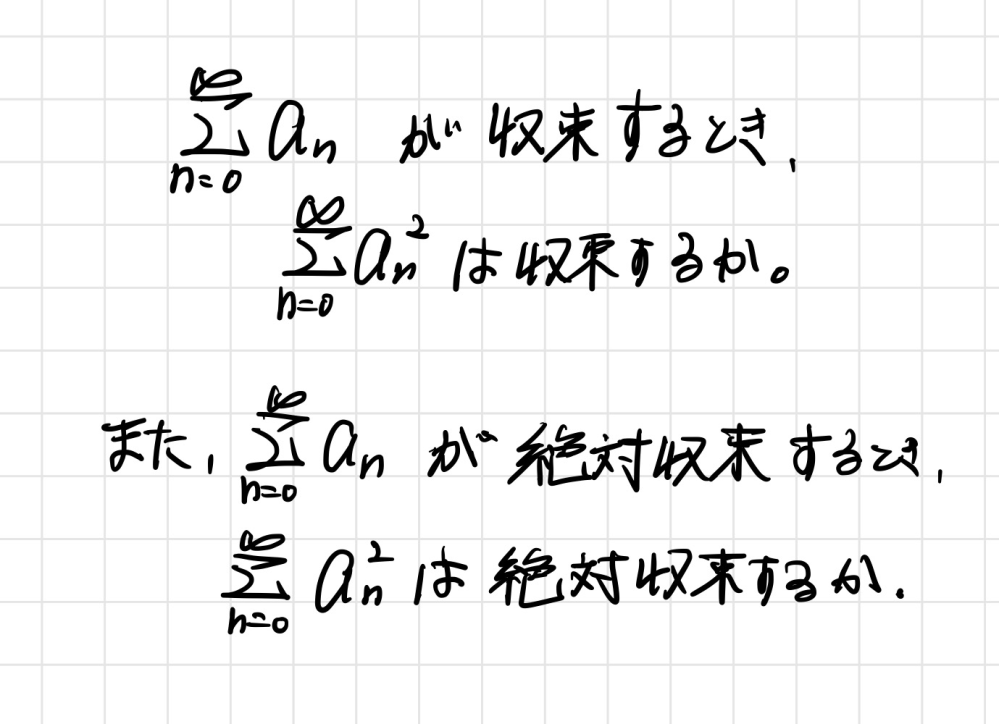 $\sum_{n=0}^{\infty} a_n$ が収束するとき,
$\sum_{n=0}^{\infty} a_n^2$ は収束するか。
また, $\sum_{n=0}^{\infty} a_n$ が絶対収束するとき,
$\sum_{n=0}^{\infty} a_n^2$ は絶対収束するか.